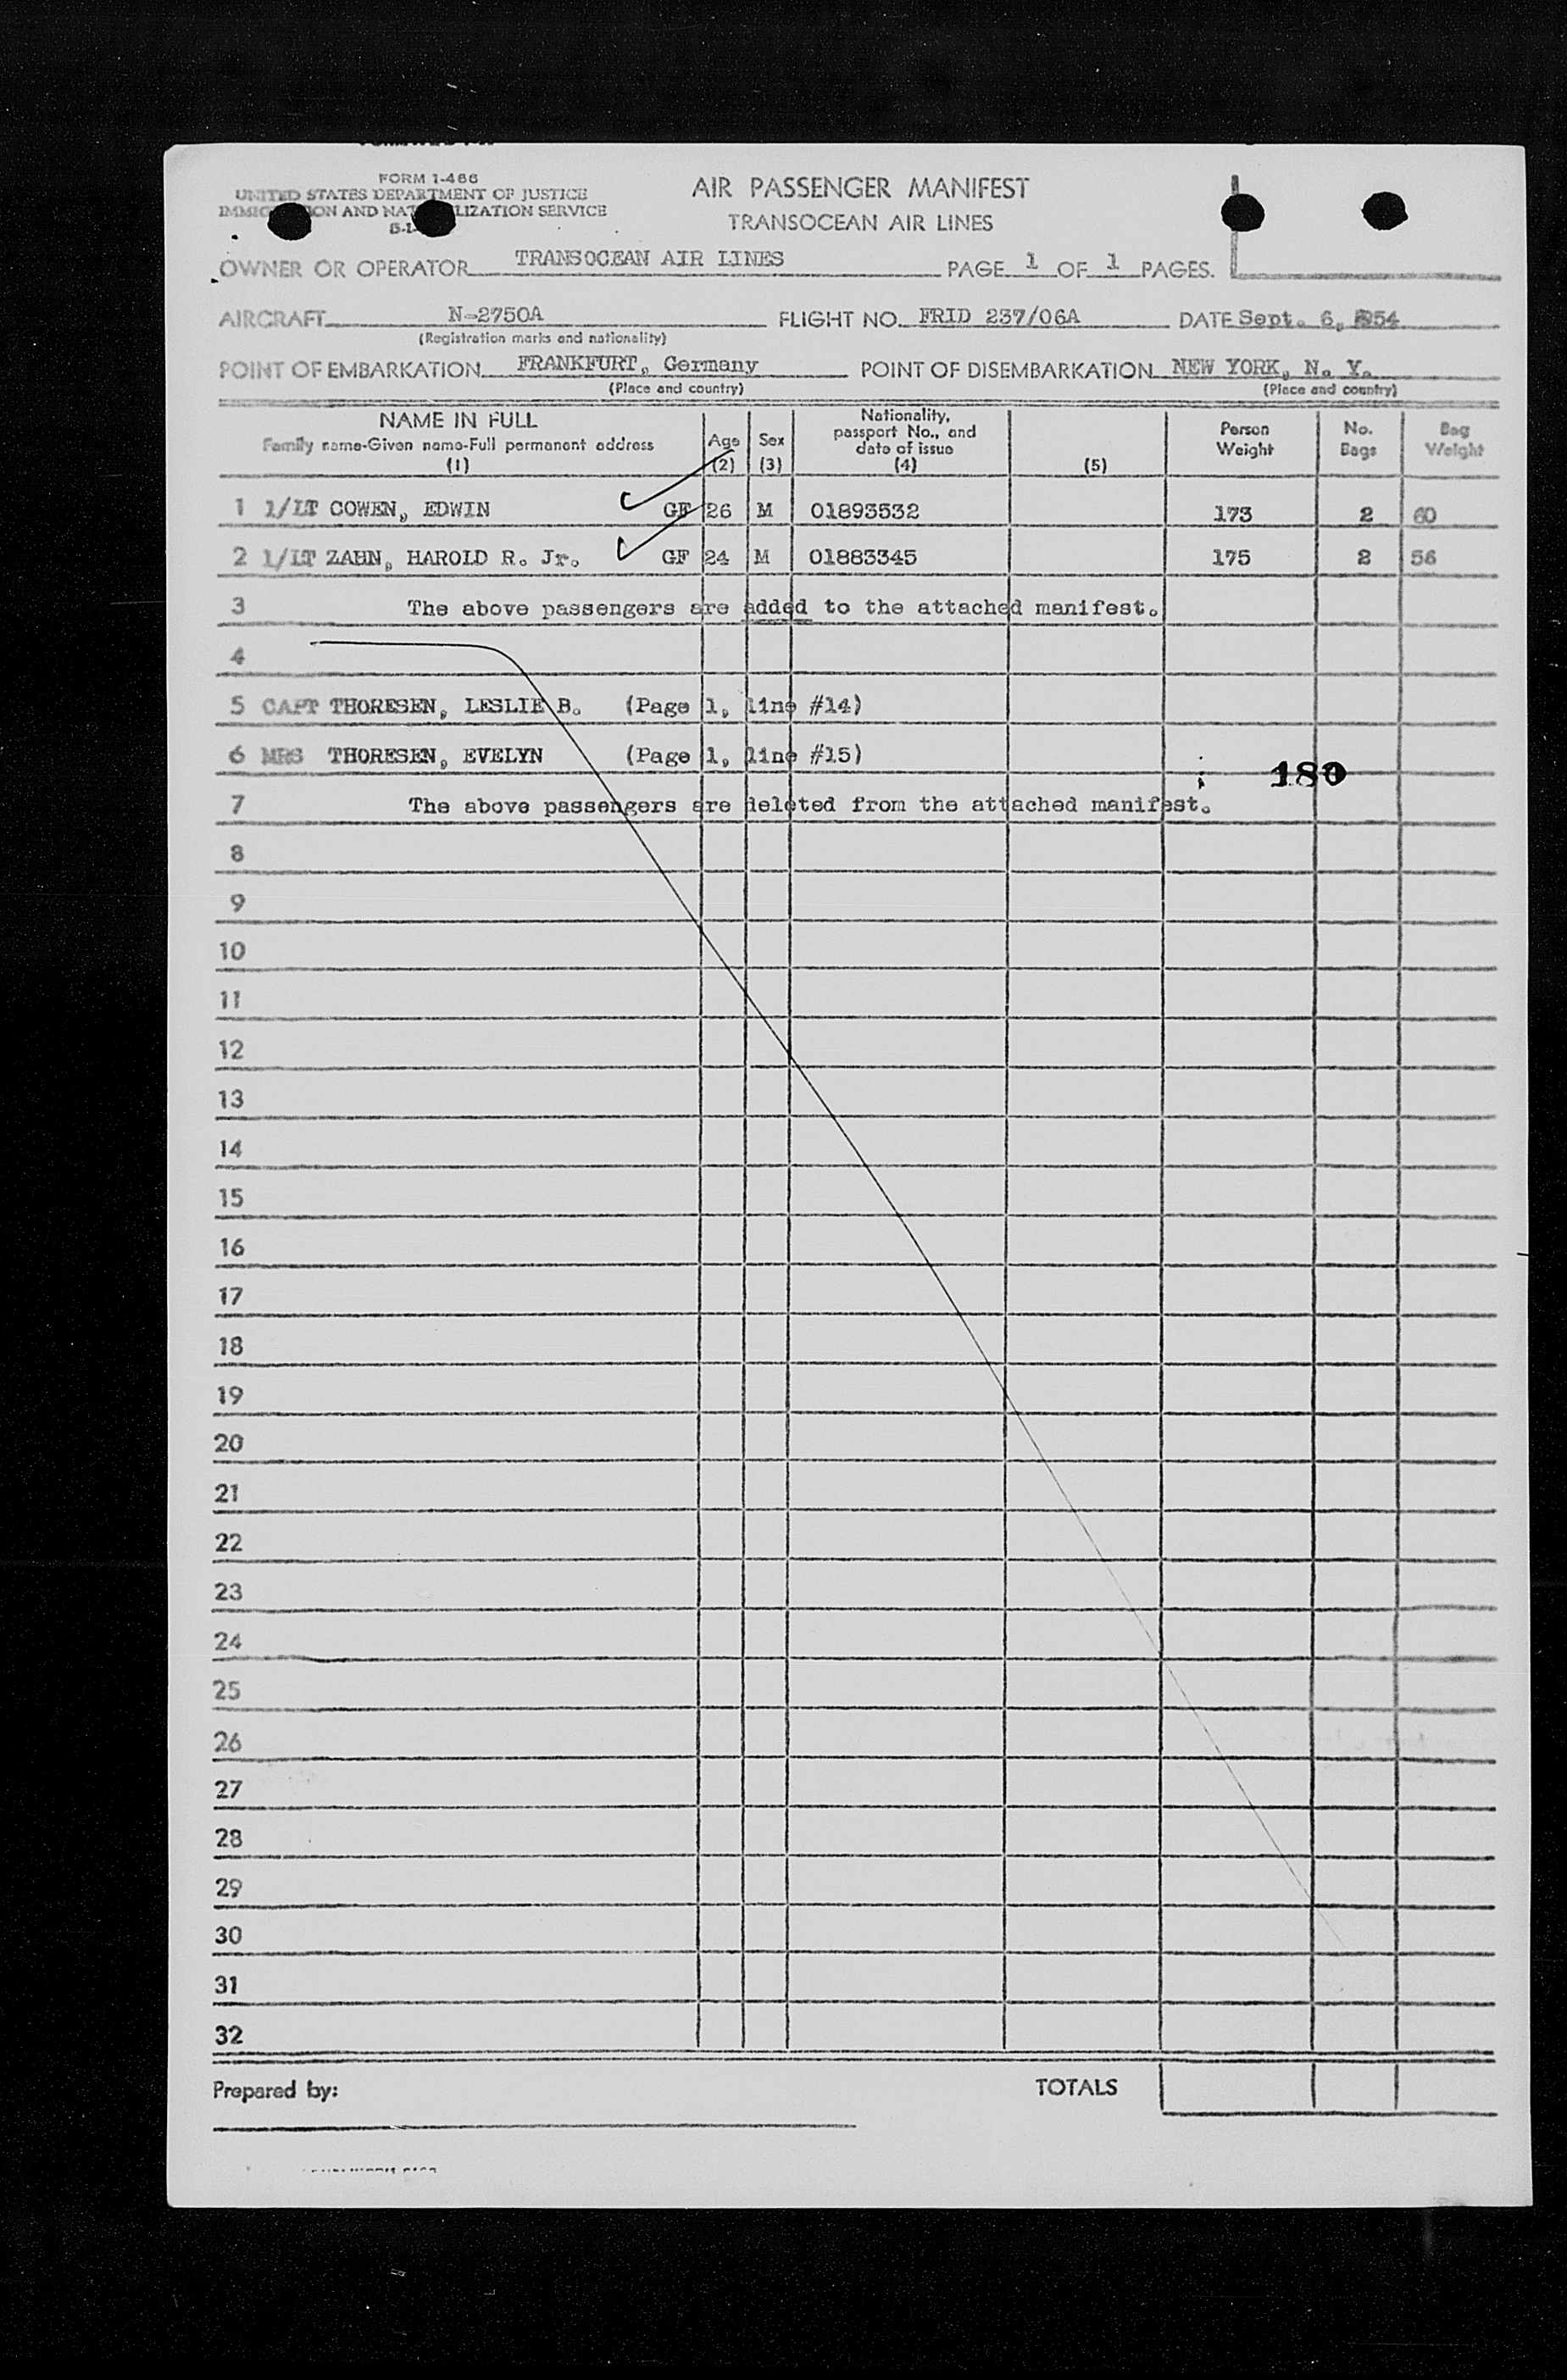 FORM I-466
UNITED STATES DEPARTMENT OF JUSTICE
AND SERVICE
AIR PASSENGER MANIFEST
TRANSOCEAN AIR LINES
OWNER OR OPERATOR TRANSOCEAN AIR LINES PAGE 1 OF 1 PAGES.
AIRCRAFT N-2750A FLIGHT NO. FRID 237/06A DATE Sept. 6, 1954
(Registration marks and nationality)
POINT OF EMBARKATION FRANKFURT, Germany POINT OF DISEMBARKATION NEW YORK, N. Y.
(Place and country) (Place and country)
NAME IN FULL
Family name-Given name-Full permanent address
(1)
Age
(2)
Sex
(3)
Nationality,
passport No., and
date of issue
(4)
(5)
Person
Weight
No.
Bags
Bag
Weight
1 1/LT COWEN, EDWIN GF 26 M 01893532 173 2 60
2 1/LT ZAHN, HAROLD R. Jr. GF 24 M 01883345 175 2 56
3 The above passengers are added to the attached manifest.
4
5 CAPT THORESEN, LESLIE B. (Page 1, line #14)
6 MRS THORESEN, EVELYN (Page 1, line #15)
180
7 The above passengers are deleted from the attached manifest.
8
9
10
11
12
13
14
15
16
17
18
19
20
21
22
23
24
25
26
27
28
29
30
31
32
Prepared by: TOTALS